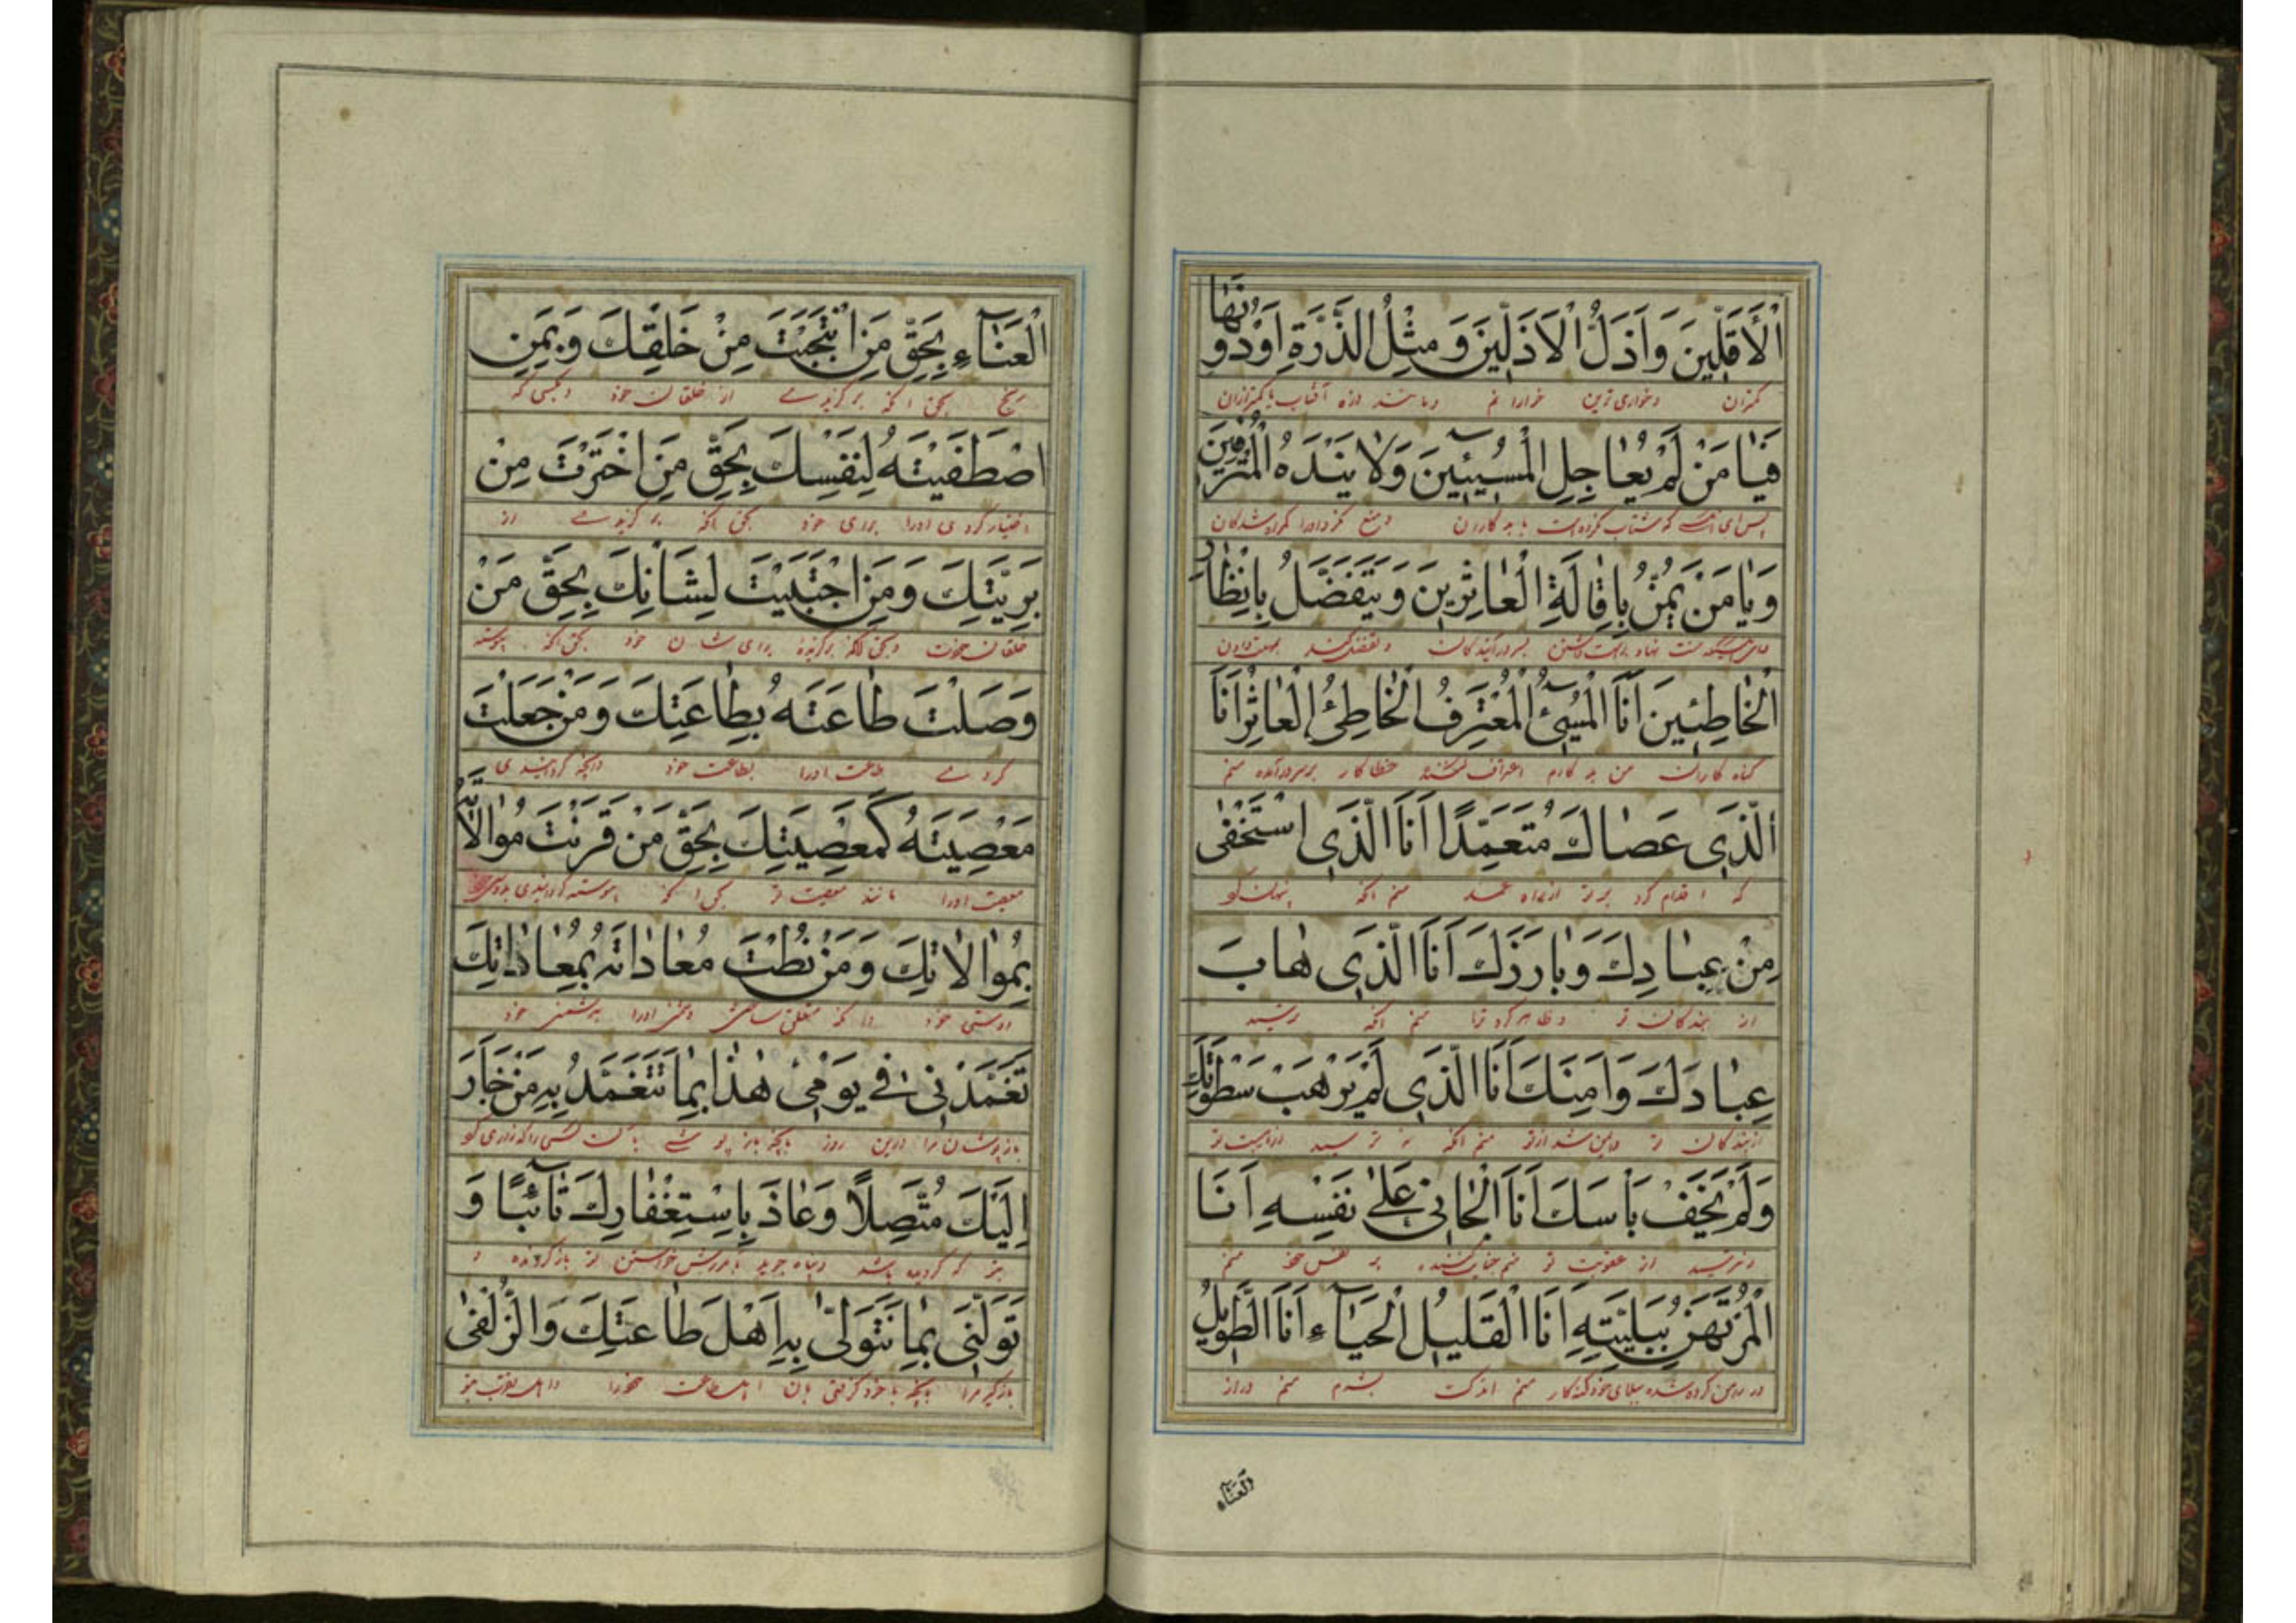 الْأَقَلِّينَ وَأَذَلُّ الْأَذَلِّينَ وَمِثْلُ الذَّرَّةِ أَوْ دُونَهَا
کمتران و خواری ترین خوارانم و مانند ذره آفتاب یا کمتر از آن
فَيَا مَنْ لَمْ يُعَاجِلِ الْمُسِيئِينَ وَلَا يَنْدَهُ الْمُتْرَفِينَ
پس ای آنکه شتاب نکرده است با بدکاران و منع نکرد
وَيَا مَنْ يَمُنُّ بِإِقَالَةِ الْعَاثِرِينَ وَيَتَفَضَّلُ بِإِنْظَارِ
بسر درآیندگان و تفضل کند بمهلت دادن
الْخَاطِئِينَ أَنَا الْمُسِيءُ الْمُعْتَرِفُ الْخَاطِئُ الْعَاثِرُ أَنَا
گناه کاران من بد کارم اعتراف کننده خطا کار بسر درآمده منم
الَّذِي عَصَاكَ مُتَعَمِّدًا أَنَا الَّذِي اسْتَخْفَى
که اقدام کرد بر تو از راه عمد منم آنکه پنهان
مِنْ عِبَادِكَ وَبَارَزَكَ أَنَا الَّذِي هَابَ
از بندگان تو و ظاهر کرد ترا منم آنکه ترسید
عِبَادَكَ وَأَمِنَكَ أَنَا الَّذِي لَمْ يَرْهَبْ سَطْوَتَكَ
از بندگان تو و ایمن شد از تو منم آنکه نه ترسید از هیبت تو
وَلَمْ يَخَفْ بَأْسَكَ أَنَا الْجَانِي عَلَى نَفْسِهِ أَنَا
و نترسید از عقوبت تو منم جنایت کننده بر نفس خود منم
الْمُرْتَهَنُ بِبَلِيَّتِهِ أَنَا الْقَلِيلُ الْحَيَاءِ أَنَا الطَّوِيلُ
در رهن کرده شده ببلای خود منم اندک بشرم منم دراز
الْعَنَاء
الْعَنَاءِ بِحَقِّ مَنِ انْتَجَبْتَ مِنْ خَلْقِكَ وَبِمَنِ
رنج بحق آنکه برگزیدی از خلقان خود و بکسی که
اصْطَفَيْتَهُ لِنَفْسِكَ بِحَقِّ مَنِ اخْتَرْتَ مِنْ
اختیار کردی او را برای خود بحق آنکه برگزیدی از
بَرِيَّتِكَ وَمَنِ اجْتَبَيْتَ لِشَأْنِكَ بِحَقِّ مَنْ
خلقان خودت و بحق آنکه برگزیدۀ برای شان خود بحق آنکه پیوسته
وَصَلْتَ طَاعَتَهُ بِطَاعَتِكَ وَمَنْ جَعَلْتَ
کردی طاعت او را بطاعت خود و آنکه گردانیدی
مَعْصِيَتَهُ كَمَعْصِيَتِكَ بِحَقِّ مَنْ قَرَنْتَ مُوَالَاتَهُ
معصیت او را مانند معصیت تو بحق آنکه پیوسته گردانیدی
بِمُوَالَاتِكَ وَمَنْ نُطْتَ مُعَادَاتَهُ بِمُعَادَاتِكَ
دوستی خود و آنکه متعلق ساختی دشمنی او را بدشمنی خود
تَغَمَّدْنِي فِي يَوْمِي هَذَا بِمَا تَتَغَمَّدُ بِهِ مَنْ جَأَرَ
باز پوشان مرا درین روز بآنچه باز پوشی بآن کسی را که زاری کو
إِلَيْكَ مُتَنَصِّلًا وَعَاذَ بِاسْتِغْفَارِكَ تَائِبًا وَ
بتو که گردیده باشد و پناه جوید بآمرزش خواستن تو باز گردنده و
تَوَلَّنِي بِمَا تَتَوَلَّى بِهِ أَهْلَ طَاعَتِكَ وَالزُّلْفَى
بازگیر مرا بآنچه باخود گرفتی بآن اهل طاعت خود را و اهل تقرب بتو